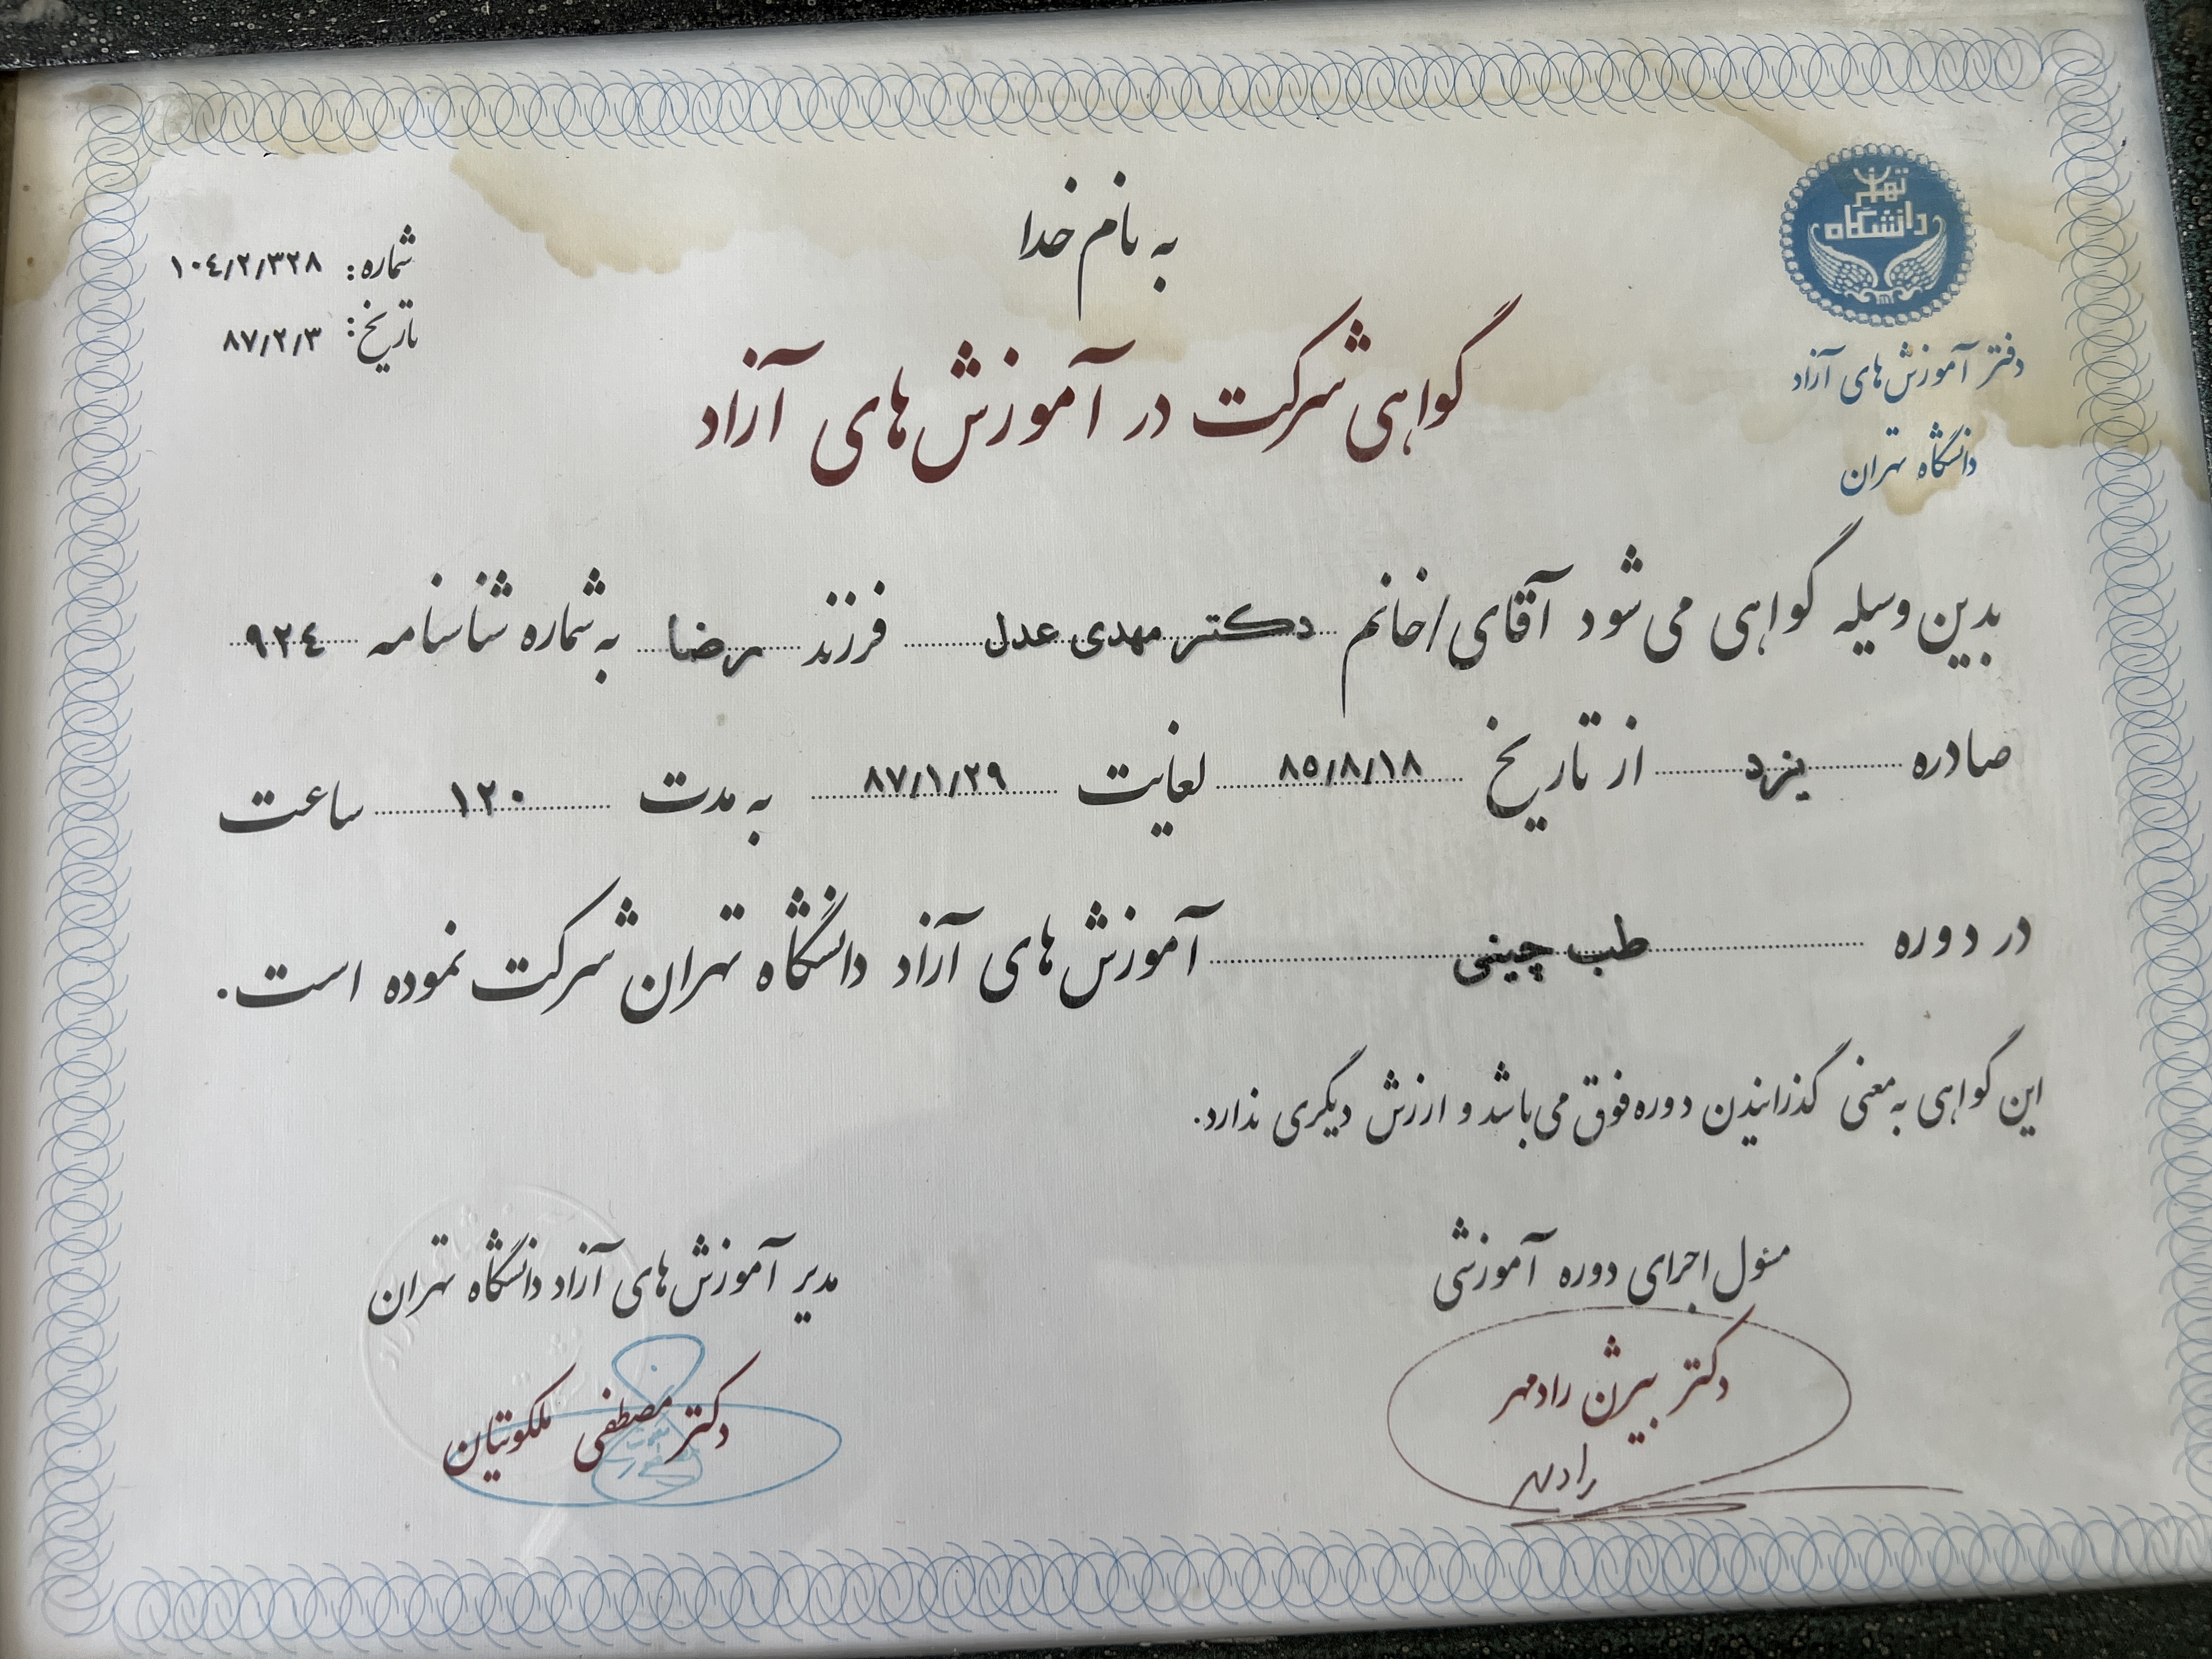 به نام خدا
تهران
دانشگاه
دفتر آموزش‌های آزاد
دانشگاه تهران
شماره: ۱۰٤/۲/۳۲۸
تاریخ: ۸۷/۲/۳
گواهی شرکت در آموزش‌های آزاد
بدین وسیله گواهی می شود آقای/خانم دکتر مهدی عدل فرزند رضا به شماره شناسنامه ۹۲٤
صادره یزد از تاریخ ۸۵/۸/۱۸ لغایت ۸۷/۱/۲۹ به مدت ۱۲۰ ساعت
در دوره طب چینی آموزش‌های آزاد دانشگاه تهران شرکت نموده است.
این گواهی به معنی گذرانیدن دوره فوق می‌باشد و ارزش دیگری ندارد.
مسئول اجرای دوره آموزشی
دکتر بیژن رادمهر
مدیر آموزش‌های آزاد دانشگاه تهران
دکتر مصطفی ملکوتیان